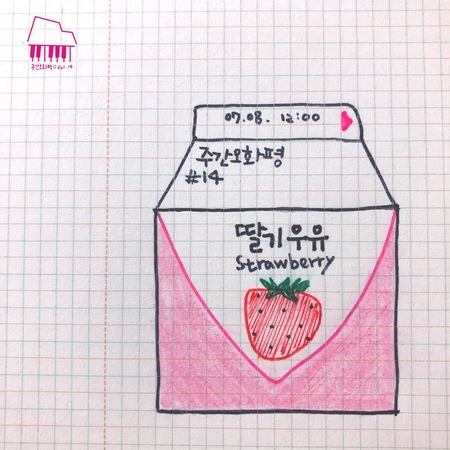 주간오화평 II Vol. 14
07.08. 12:00
주간오화평
#14
딸기우유
Strawberry